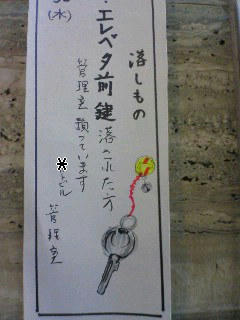 落しもの
・エレベタ前 鍵 落された方
管理室 預っています
ビル 管理室
(水)